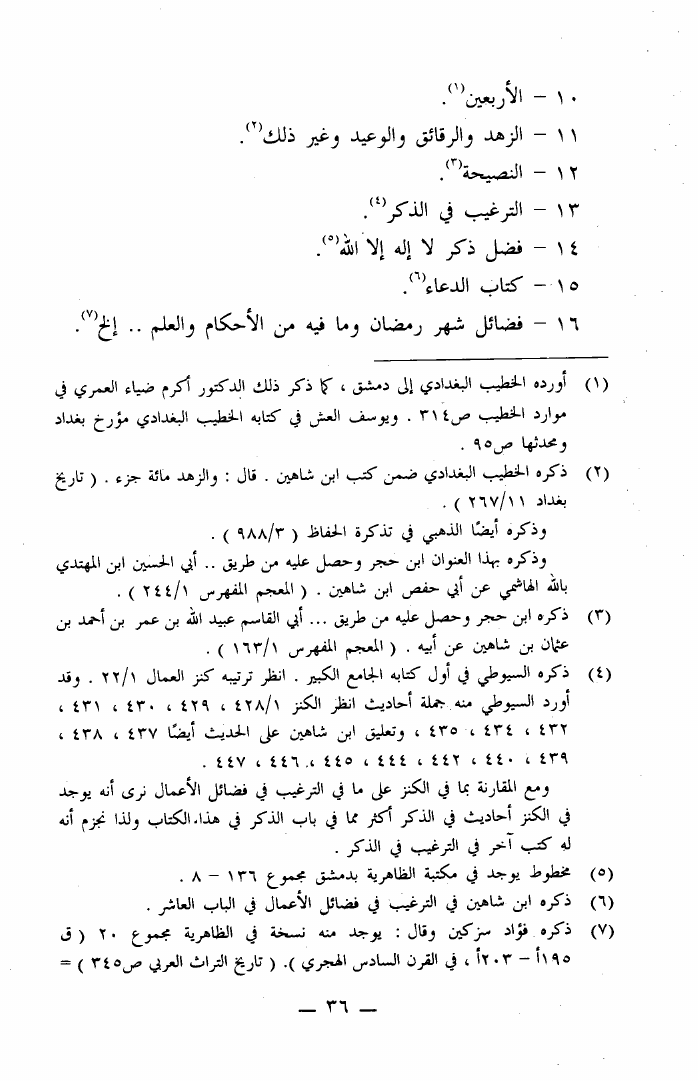 ١٠ – الأربعين(١).
١١ – الزهد والرقائق والوعيد وغير ذلك(٢).
١٢ – النصيحة(٣).
١٣ – الترغيب في الذكر(٤).
١٤ – فضل ذكر لا إله إلا الله(٥).
١٥ – كتاب الدعاء(٦).
١٦ – فضائل شهر رمضان وما فيه من الأحكام والعلم .. إلخ(٧).
(١) أورده الخطيب البغدادي إلى دمشق ، كما ذكر ذلك الدكتور أكرم ضياء العمري في
موارد الخطيب ص٣١٤ . ويوسف العش في كتابه الخطيب البغدادي مؤرخ بغداد
ومحدثها ص٩٥ .
(٢) ذكره الخطيب البغدادي ضمن كتب ابن شاهين . قال : والزهد مائة جزء . ( تاريخ
بغداد ٢٦٧/١١ ) .
وذكره أيضًا الذهبي في تذكرة الحفاظ ( ٩٨٨/٣ ) .
وذكره بهذا العنوان ابن حجر وحصل عليه من طريق .. أبي الحسين ابن المهتدي
بالله الهاشمي عن أبي حفص ابن شاهين . ( المعجم المفهرس ٢٤٤/١ ) .
(٣) ذكره ابن حجر وحصل عليه من طريق ... أبي القاسم عبيد الله بن عمر بن أحمد بن
عثمان بن شاهين عن أبيه . ( المعجم المفهرس ١٦٣/١ ) .
(٤) ذكره السيوطي في أول كتابه الجامع الكبير . انظر ترتيبه كنز العمال ٢٢/١ . وقد
أورد السيوطي منه جملة أحاديث انظر الكنز ٤٢٨/١ ، ٤٢٩ ، ٤٣٠ ، ٤٣١ ،
٤٣٢ ، ٤٣٤ ، ٤٣٥ ، وتعليق ابن شاهين على الحديث أيضًا ٤٣٧ ، ٤٣٨ ،
٤٣٩ ، ٤٤٠ ، ٤٤٢ ، ٤٤٤ ، ٤٤٥ ، ٤٤٦ ، ٤٤٧ .
ومع المقارنة بما في الكنز على ما في الترغيب في فضائل الأعمال نرى أنه يوجد
في الكنز أحاديث في الذكر أكثر مما في باب الذكر في هذا الكتاب ولذا نجزم أنه
له كتب آخر في الترغيب في الذكر .
(٥) مخطوط يوجد في مكتبة الظاهرية بدمشق مجموع ١٣٦ – ٨ .
(٦) ذكره ابن شاهين في الترغيب في فضائل الأعمال في الباب العاشر .
(٧) ذكره فؤاد سزكين وقال : يوجد منه نسخة في الظاهرية مجموع ٢٠ ( ق
١٩٥أ – ٢٠٣أ ، في القرن السادس الهجري ). ( تاريخ التراث العربي ص٣٤٥ ) =
— ٣٦ —